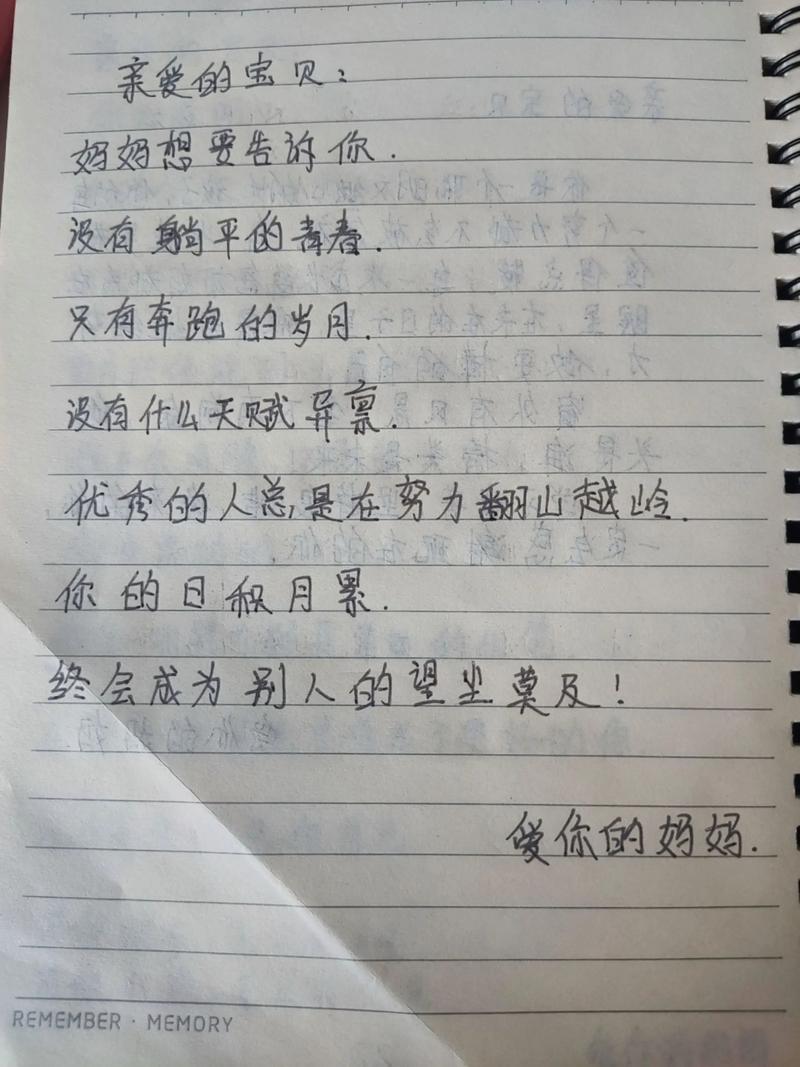 亲爱的宝贝：
妈妈想要告诉你.
没有躺平的青春.
只有奔跑的岁月.
没有什么天赋异禀.
优秀的人总是在努力翻山越岭.
你的日积月累.
终会成为别人的望尘莫及！
爱你的妈妈.
REMEMBER · MEMORY